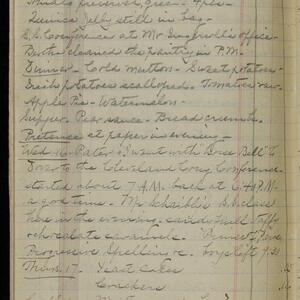 preserved, green - Apls -
Quince Jelly still in bag -
S.S. Conference at Mr office
Bertha cleaned the pantry in P.M.
Dinner - Cold mutton - Sweet potatoes -
Irish potatoes scalloped. Tomatoes raw
Apple Pie - Watermelon -
Supper - Pear sauce - Bread crumbs -
Pretense at paper in evening -
Wed 16 - Pater & I went with "Bose Bell" to
Dover to the Cleveland Cong Conference
started about 7 A.M. back at 6.45 P.M.
a good time - Mr S.S. class
here in the evening. and made taffy
chocolate caramels.
Progressive Spelling &c.
Thurs 17. Yeast Cake
Crackers